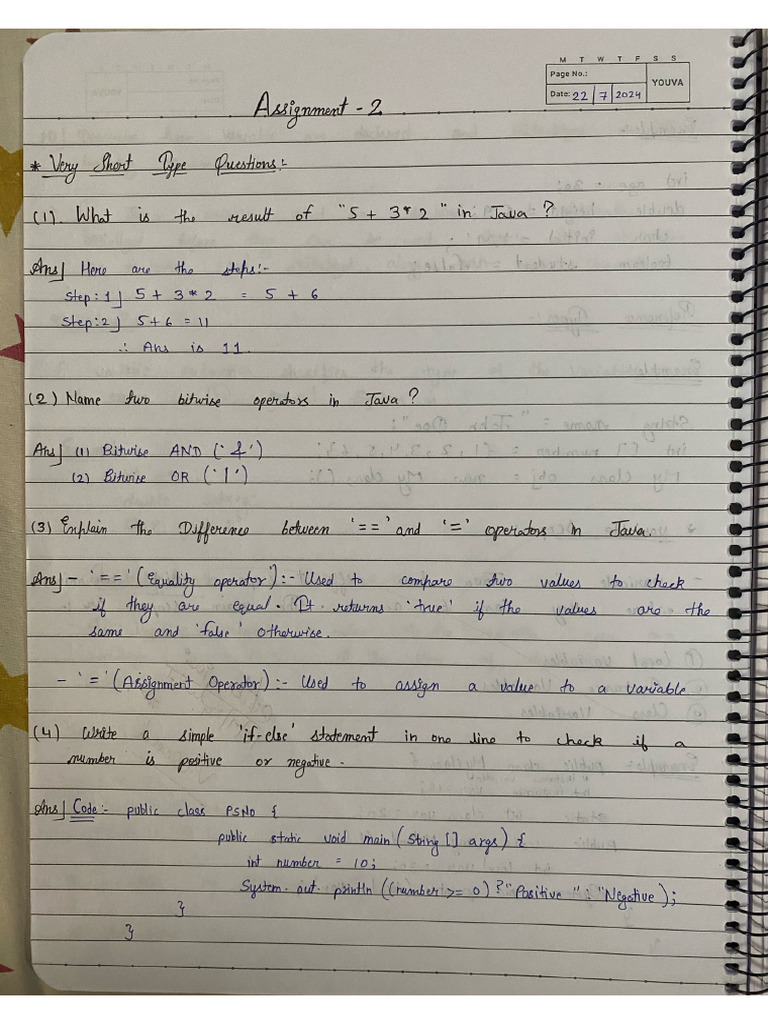 M T W T F S S
Page No.:
Date: 22/7/2024
YOUVA
Assignment - 2
* Very Short Type Questions:-
(1). What is the result of "5 + 3*2" in Java?
Ans] Here are the steps:-
Step:1] 5 + 3*2 = 5 + 6
Step:2] 5+6 = 11
∴ Ans is 11.
(2) Name two bitwise operators in Java?
Ans] (1) Bitwise AND ('&')
(2) Bitwise OR ('|')
(3) Explain the Difference between '==' and '=' operators in Java.
Ans] - '==' (Equality operator'):- Used to compare two values to check
if they are equal. It returns 'true' if the values are the
same and 'false' otherwise.
- '=' (Assignment Operator):- Used to assign a value to a variable
(4) Write a simple 'if-else' statement in one line to check if a
number is positive or negative.
Ans] Code:- public class PSNo {
public static void main (String [] args) {
int number = 10;
System.out.println ((number >= 0) ? "Positive" : "Negative);
}
}